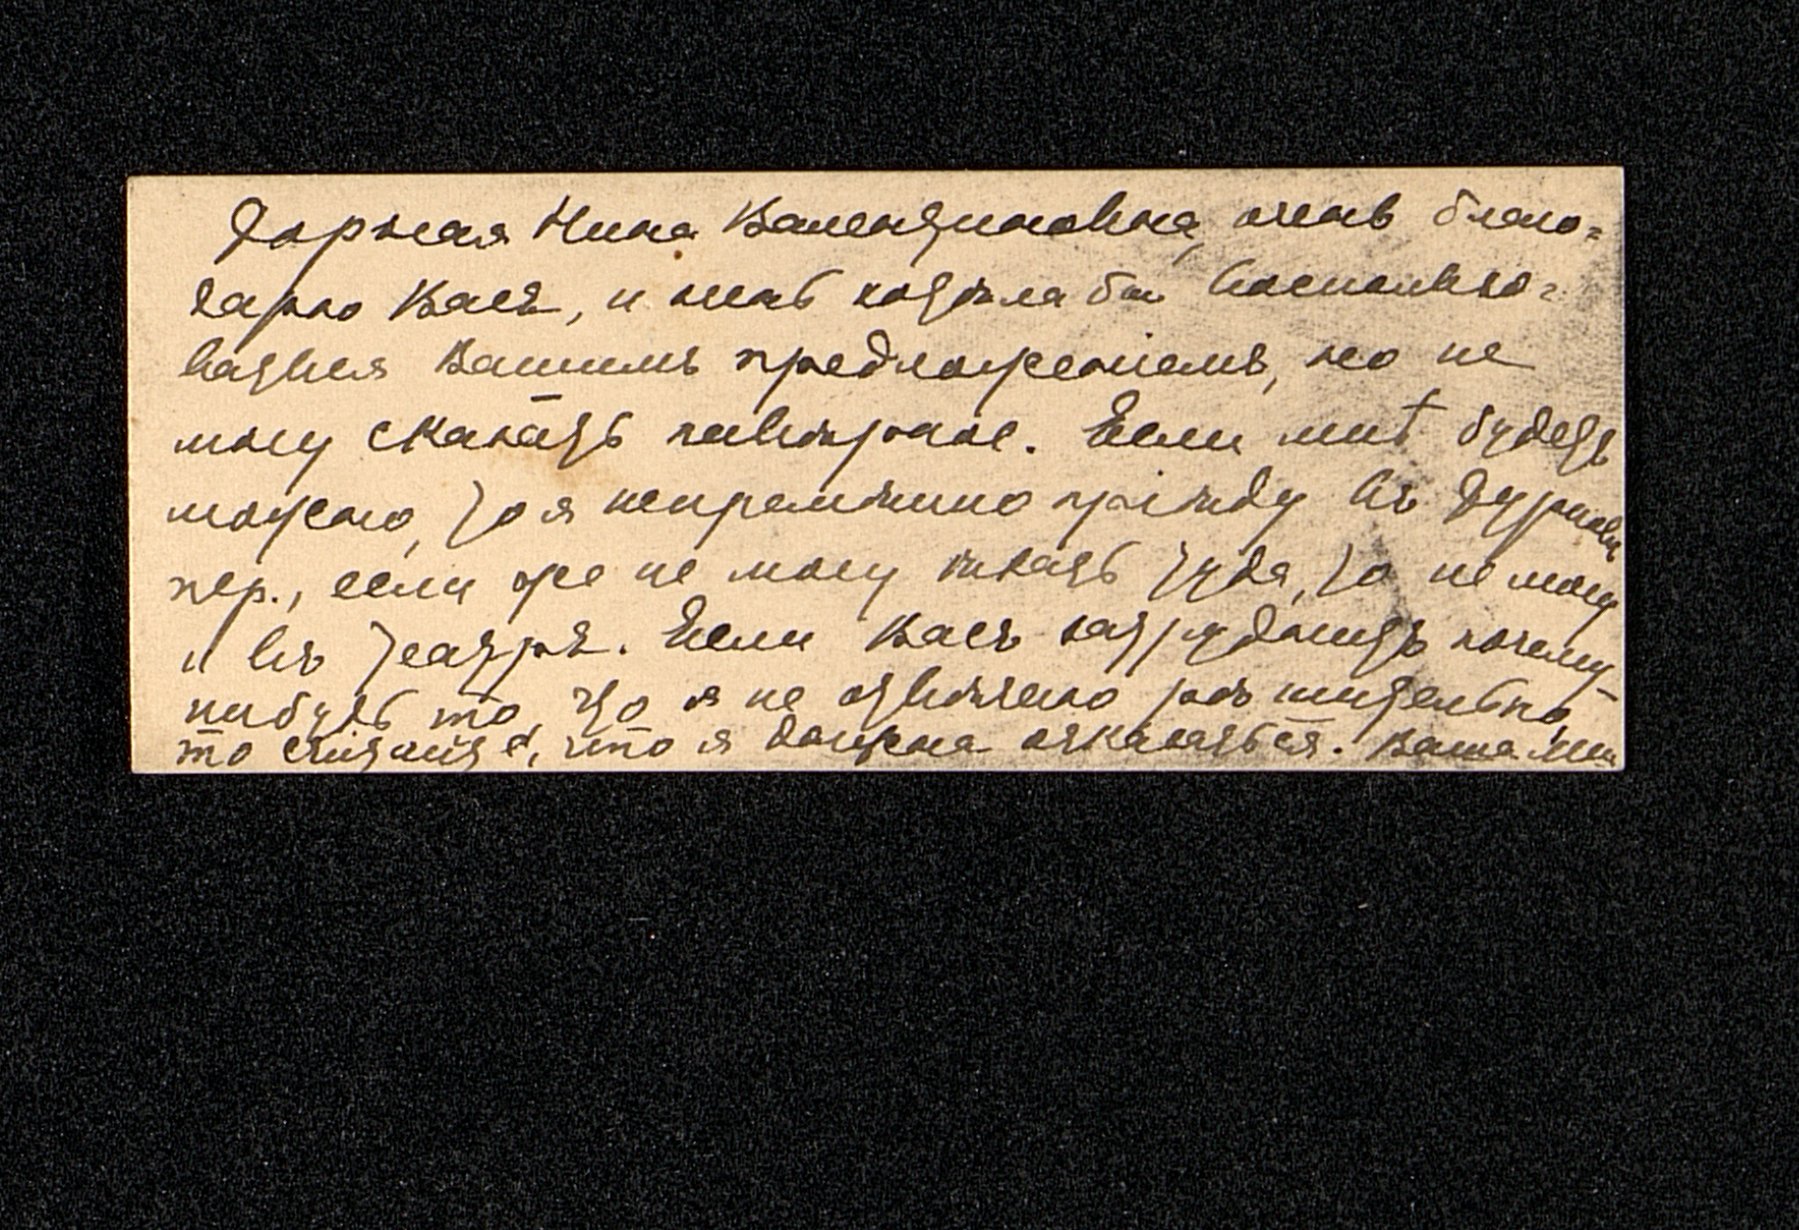 Дорогая Нина Валентиновна, очень благо=
дарю Васъ, и очень хотѣла бы воспользо=
ваться Вашимъ предложеніемъ, но не
могу сказать навѣрное. Если мнѣ будетъ
можно, то я непремѣнно пріѣду въ Дурнов.
пер., если же не могу ѣхать туда, то не могу
и въ театръ. Если Васъ затруднитъ почему
нибудь то, что я не отвѣчаю рѣшительно,
то считайте, что я должна отказаться. Ваша